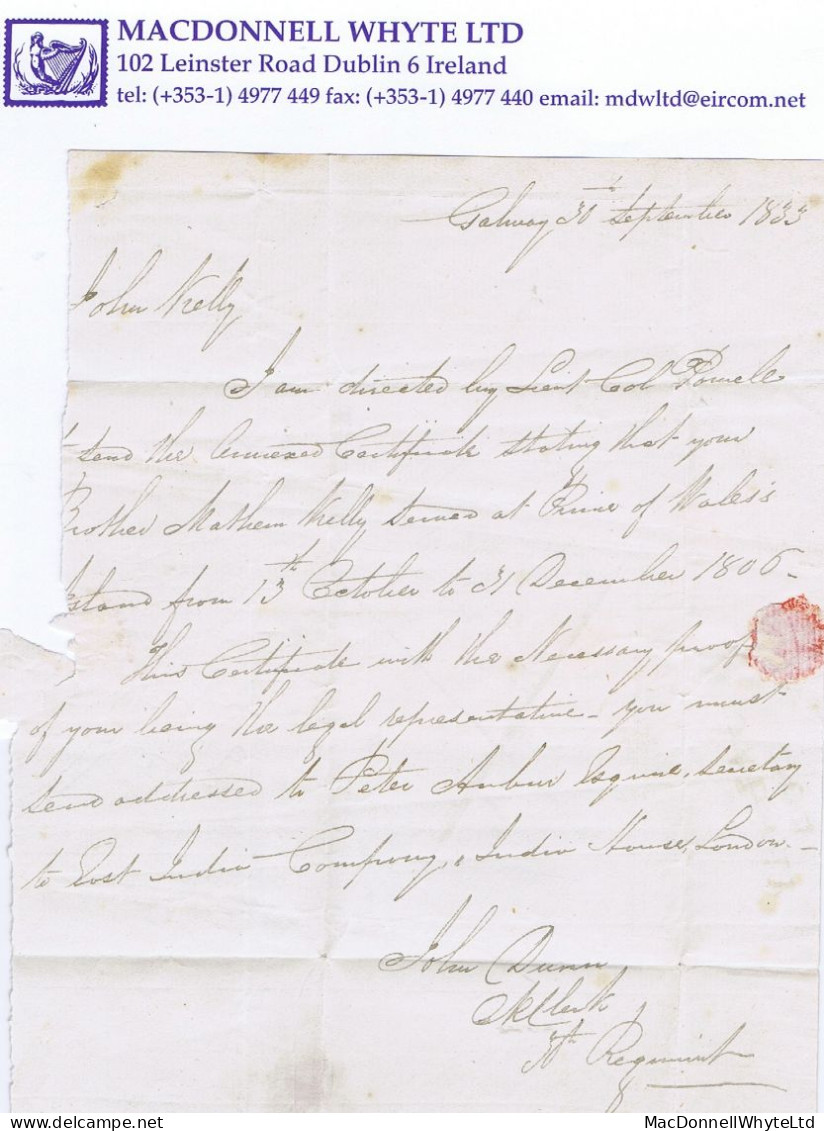 MACDONNELL WHYTE LTD
102 Leinster Road Dublin 6 Ireland
tel: (+353-1) 4977 449 fax: (+353-1) 4977 440 email: mdwltd@eircom.net
Galway 30th September 1833
John Kelly
I am directed by Lieut Col Powell
send the Annexed Certificate stating that your
Brother Mathew Kelly served at Prince of Wales's
Island from 13th October to 31 December 1806 -
This Certificate with the Necessary proof
of your being the legal representative - you must
send addressed to Peter Auber Esquire, Secretary
to East India Company, India House, London -
John Dunn
Clerk
30th Regiment
MacDonnellWhyteLtd